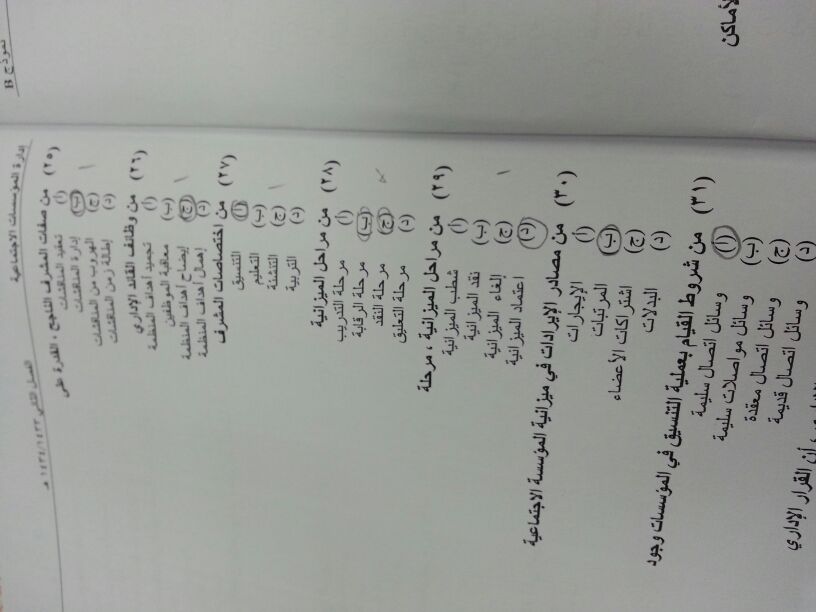 نموذج B
الأماكن
إدارة المؤسسات الاجتماعية
الفصل الثاني ١٤٣٣/١٤٣٤ هـ
(٢٥) من صفات المشرف الناجح ، القدرة على
(أ) تعقيد المناقشات
(ب) إدارة المناقشات
(ج) الهروب من المناقشات
(د) إطالة زمن المناقشات
(٢٦) من وظائف القائد الإداري
(أ) تجميد أهداف المنظمة
(ب) معاقبة الموظفين
(ج) إيضاح أهداف المنظمة
(د) إهمال أهداف المنظمة
(٢٧) من اختصاصات المشرف
(أ) التنسيق
(ب) التعليم
(ج) التنشئة
(د) التربية
(٢٨) من مراحل الميزانية
(أ) مرحلة التدريب
(ب) مرحلة الرقابة
(ج) مرحلة النقد
(د) مرحلة التعليق
(٢٩) من مراحل الميزانية ، مرحلة
(أ) شطب الميزانية
(ب) نقد الميزانية
(ج) إلغاء الميزانية
(د) اعتماد الميزانية
(٣٠) من مصادر الإيرادات في ميزانية المؤسسة الاجتماعية
(أ) الإيجارات
(ب) المرتبات
(ج) اشتراكات الأعضاء
(د) البدلات
(٣١) من شروط القيام بعملية التنسيق في المؤسسات وجود
(أ) وسائل اتصال سليمة
(ب) وسائل مواصلات سليمة
(ج) وسائل اتصال معقدة
(د) وسائل اتصال قديمة
أن القرار الإداري